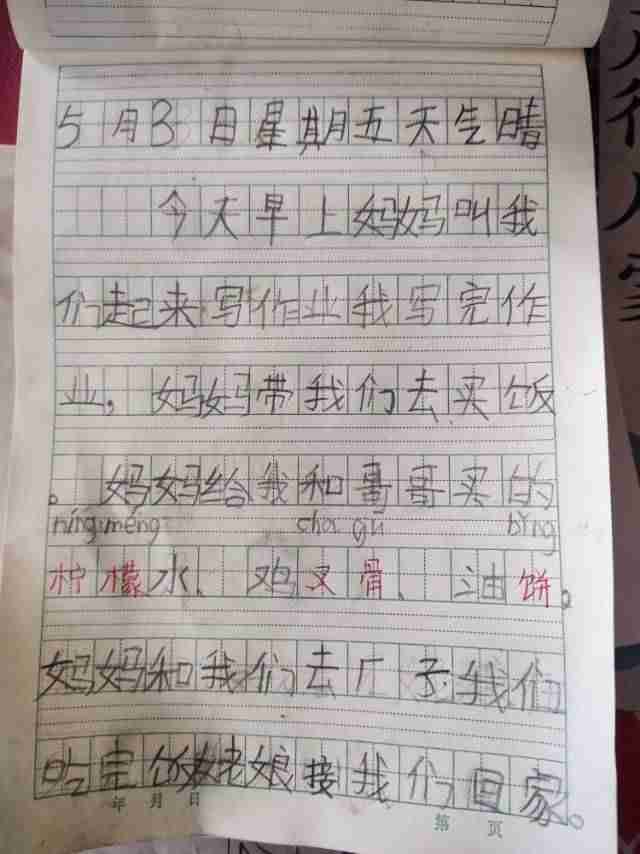 5月3日星期五天气晴
今天早上妈妈叫我
们起来写作业我写完作
业,妈妈带我们去买饭
。妈妈给我和哥哥买的
níng méng cha gǔ bǐng
柠檬水、鸡叉骨、油饼。
妈妈和我们去厂子我们
吃完饭姥娘接我们回家。
年 月 日
第 页